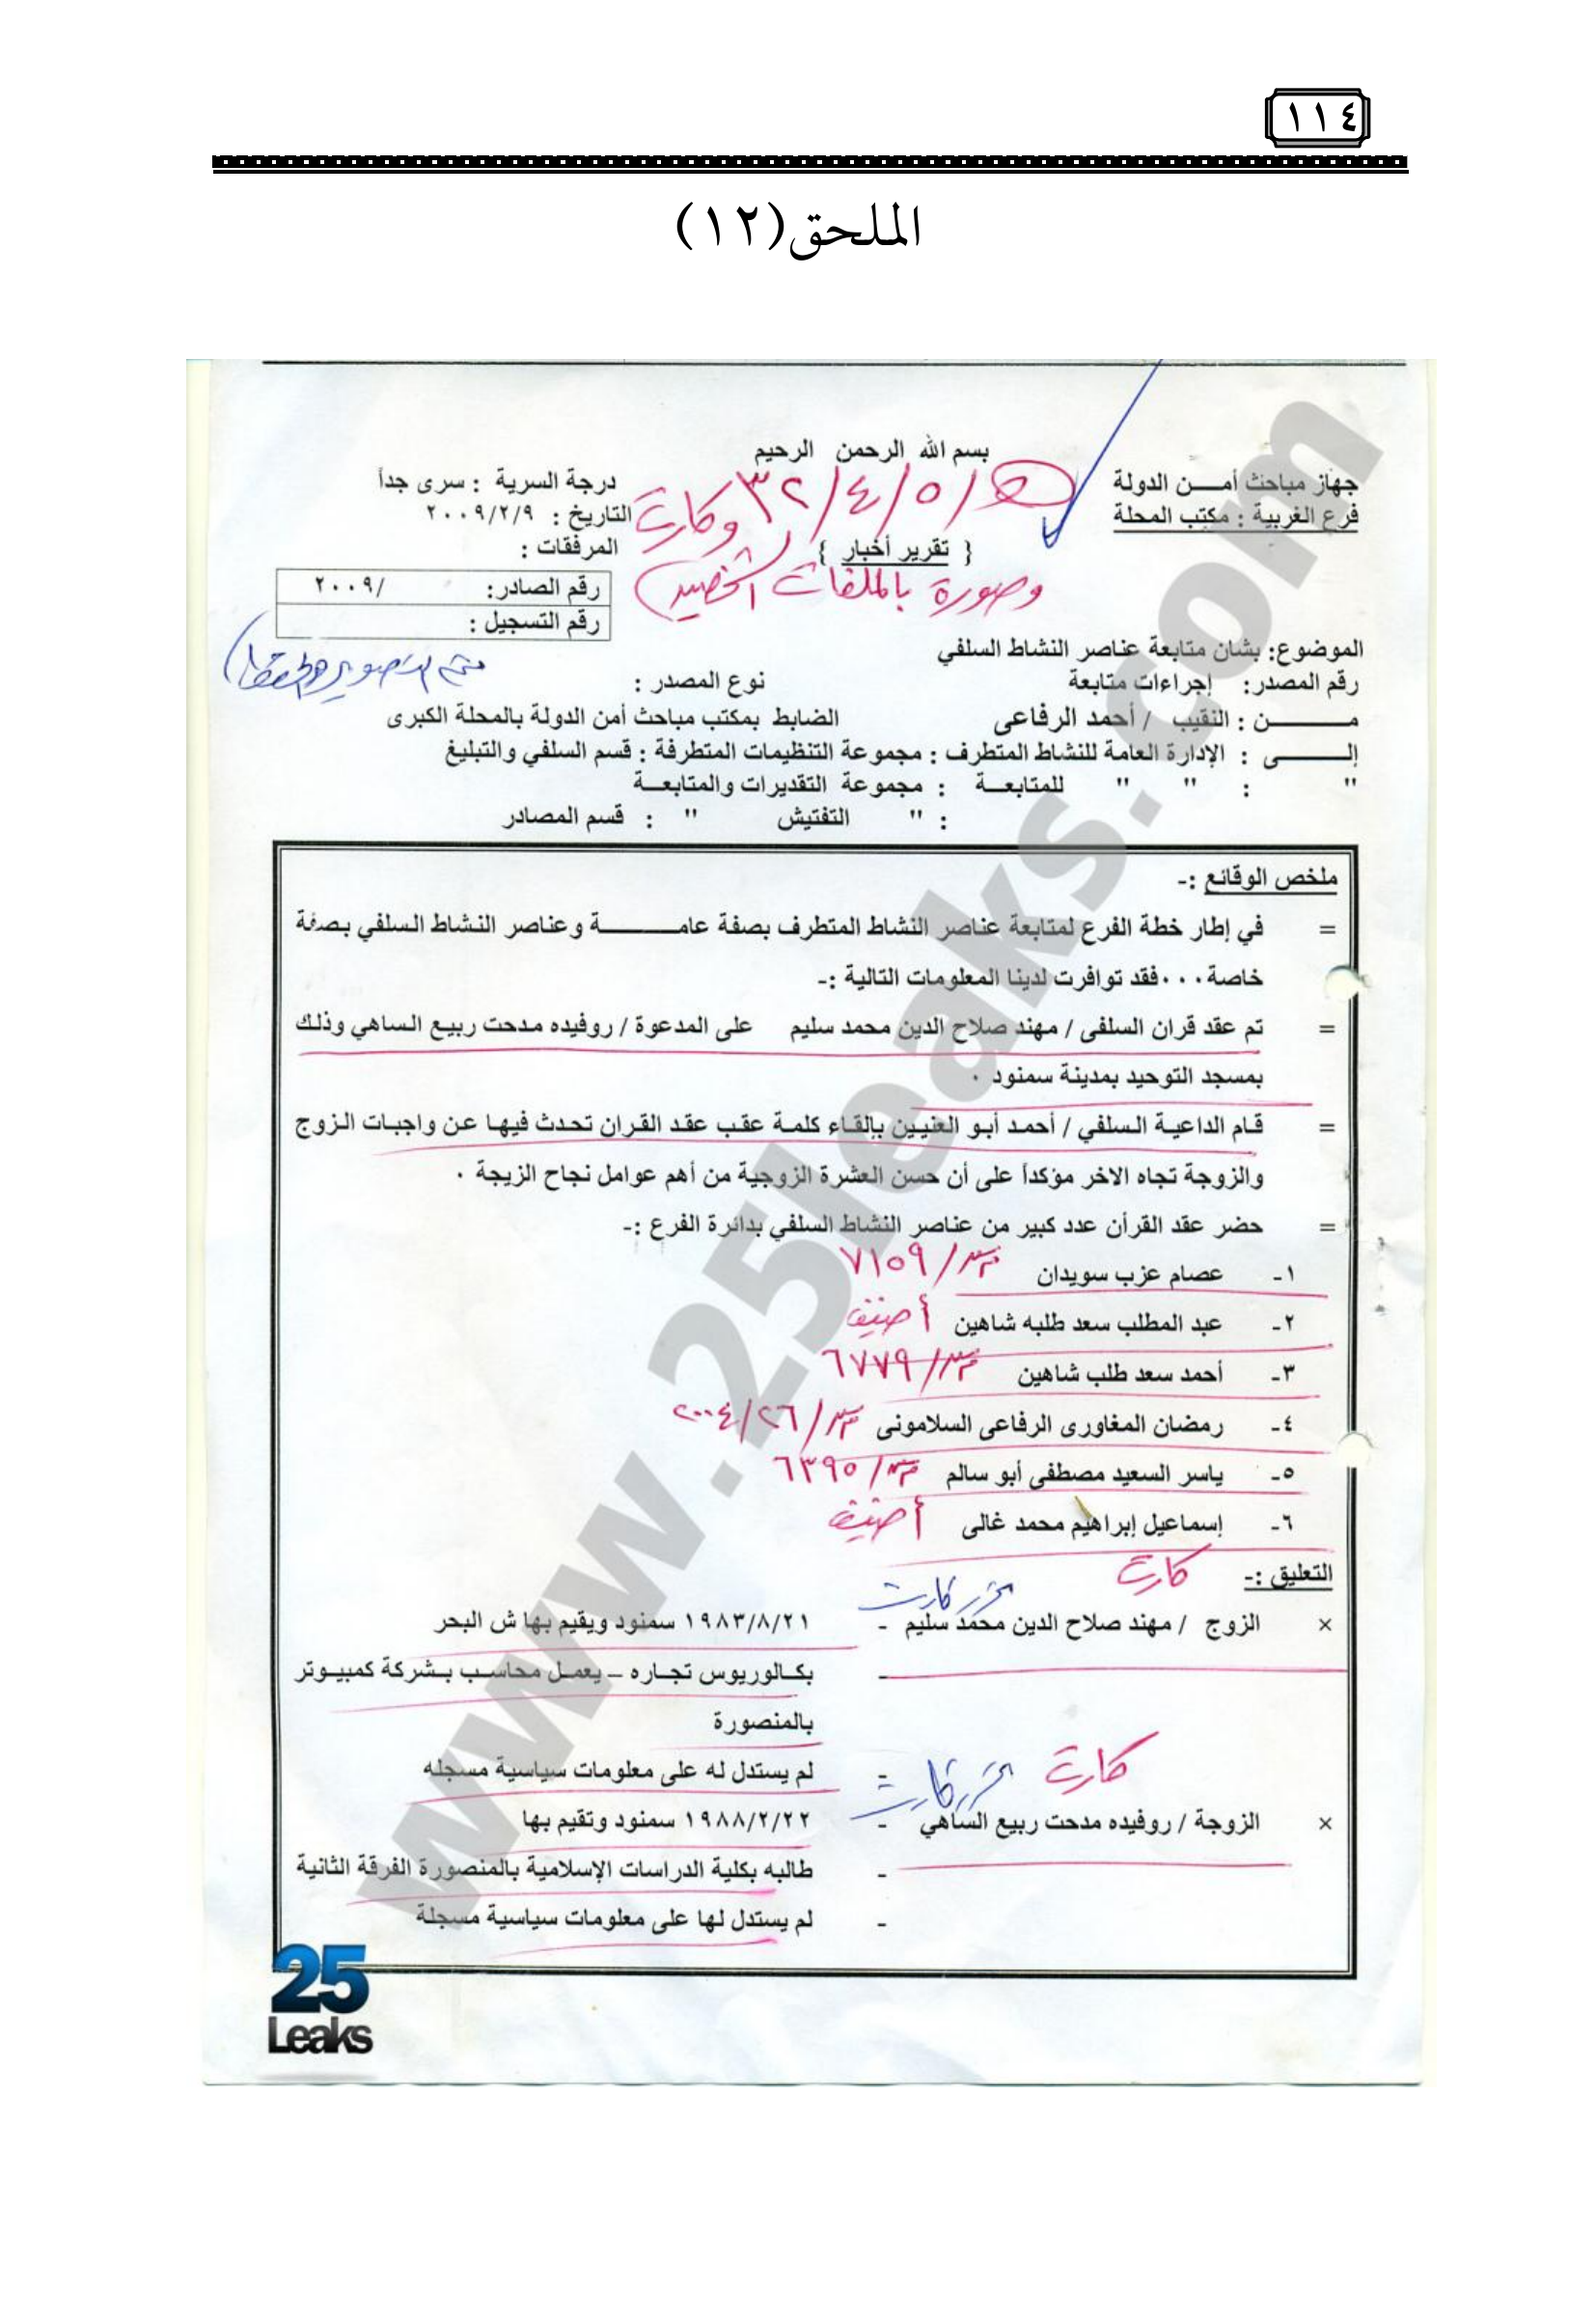 ١١٤
الملحق(١٢)
بسم الله الرحمن الرحيم
جهاز مباحث أمـــن الدولة
فرع الغربية : مكتب المحلة
درجة السرية : سرى جداً
التاريخ : ٢٠٠٩/٢/٩
المرفقات :
٣٢/٤/٥/
وكارت
{ تقرير أخبار }
وصورة بالملفات الشخصية
رقم الصادر: /٢٠٠٩
رقم التسجيل :
الموضوع: بشان متابعة عناصر النشاط السلفي
رقم المصدر: إجراءات متابعة نوع المصدر :
مـــــــن : النقيب / أحمد الرفاعى الضابط بمكتب مباحث أمن الدولة بالمحلة الكبرى
إلـــــــى : الإدارة العامة للنشاط المتطرف : مجموعة التنظيمات المتطرفة : قسم السلفي والتبليغ
" : " " للمتابعـــة : مجموعة التقديرات والمتابعـــة
: " التفتيش " : قسم المصادر
ملخص الوقائع :-
= في إطار خطة الفرع لمتابعة عناصر النشاط المتطرف بصفة عامـــــــــة وعناصر النشاط السلفي بصفة
خاصة ٠٠٠ فقد توافرت لدينا المعلومات التالية :-
= تم عقد قران السلفى / مهند صلاح الدين محمد سليم على المدعوة / روفيده مدحت ربيع الساهي وذلك
بمسجد التوحيد بمدينة سمنود ٠
= قام الداعية السلفي / أحمد أبو العنيين بإلقاء كلمة عقب عقد القران تحدث فيها عن واجبات الزوج
والزوجة تجاه الاخر مؤكداً على أن حسن العشرة الزوجية من أهم عوامل نجاح الزيجة ٠
= حضر عقد القرأن عدد كبير من عناصر النشاط السلفي بدائرة الفرع :-
١- عصام عزب سويدان /٧١٥٩
٢- عبد المطلب سعد طلبه شاهين أ
٣- أحمد سعد طلب شاهين /٦٧٧٩
٤- رمضان المغاورى الرفاعى السلامونى /٢٦/٢٠٠٤
٥- ياسر السعيد مصطفى أبو سالم /٦٣٩٥
٦- إسماعيل إبراهيم محمد غالى أ
التعليق :- كارت
× الزوج / مهند صلاح الدين محمد سليم - ١٩٨٣/٨/٢١ سمنود ويقيم بها ش البحر
- بكالوريوس تجاره – يعمل محاسب بشركة كمبيوتر
بالمنصورة
- لم يستدل له على معلومات سياسية مسجله
كارت
× الزوجة / روفيده مدحت ربيع الساهي - ١٩٨٨/٢/٢٢ سمنود وتقيم بها
- طالبه بكلية الدراسات الإسلامية بالمنصورة الفرقة الثانية
- لم يستدل لها على معلومات سياسية مسجلة
25
Leaks
www.25leaks.com